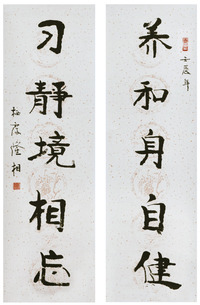 养和身自健
壬辰年
习静境相忘
隆相